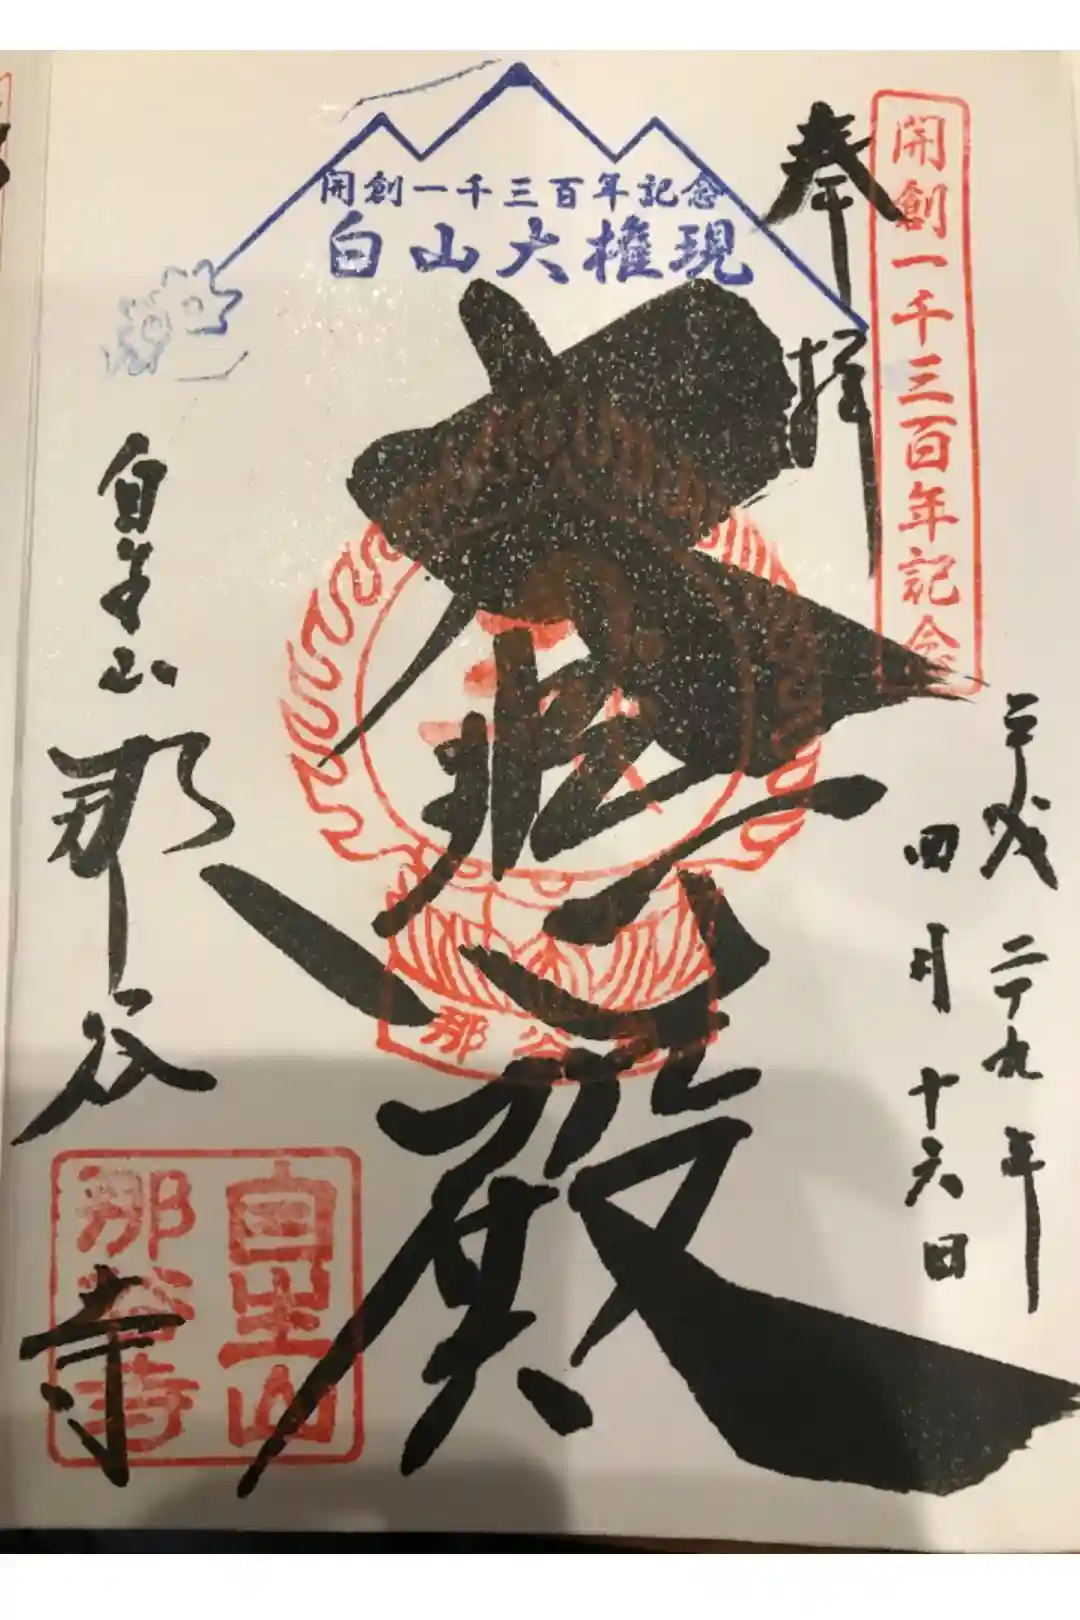 開創一千三百年記念
白山大権現
開創一千三百年記念
奉拝
平成二十九年
四月十六日
悲殿
自生山
那谷寺
那谷
自生山
那谷寺